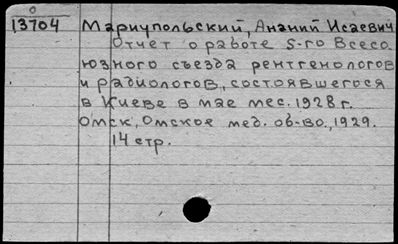 13704 Мариупольский, Ананий Исаевич
Отчет о работе 5-го Всесо
юзного съезда рентгенологов
и радиологов, состоявшегося
в Киеве в мае мес. 1928 г.
Омск, Омское мед. об-во., 1929.
14 стр.